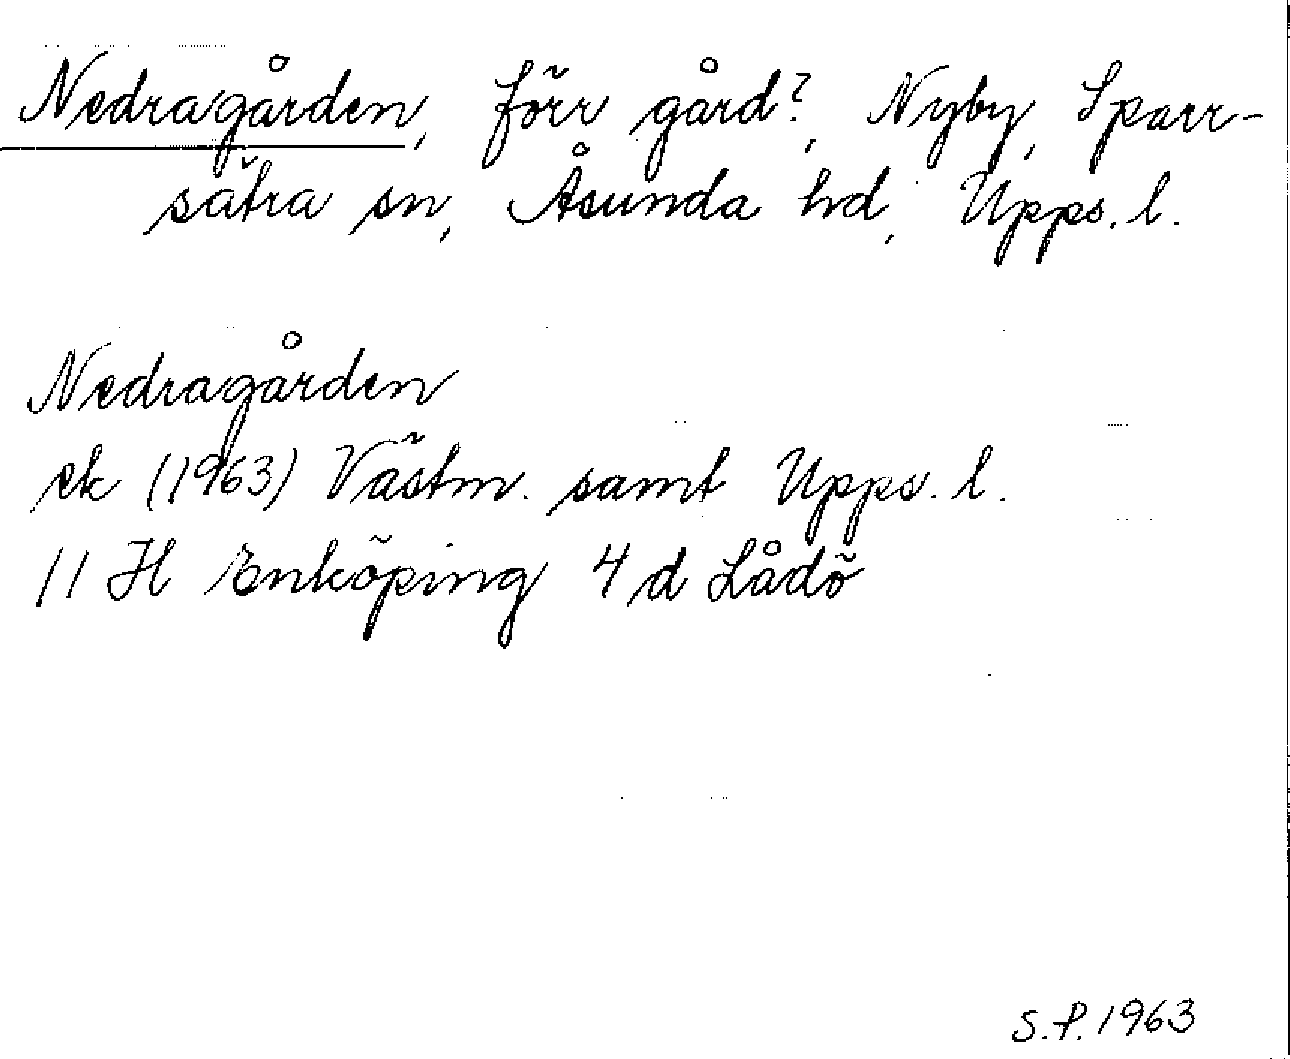 Nedragården, förr gård?, Nyby, Sparr-
sätra sn, Åsunda hd, Upps. l.
Nedragården
ek (1963) Västm. samt Upps. l.
11 H Enköping 4 d Lådö
S.P. 1963